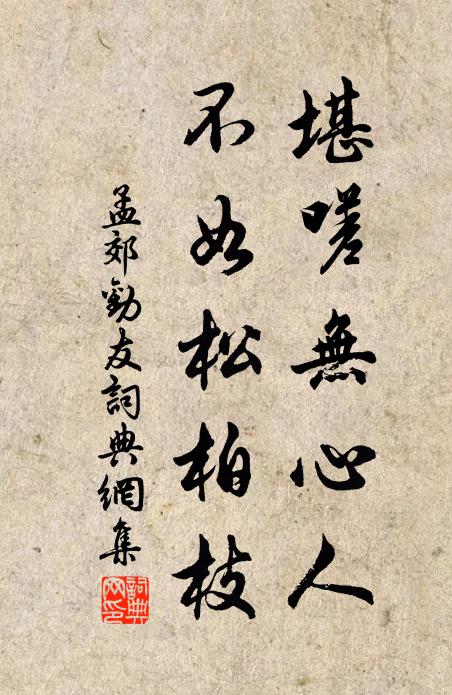 堪嗟無心人
不如松柏枝
孟郊勸友詞典網集
詞典
网印